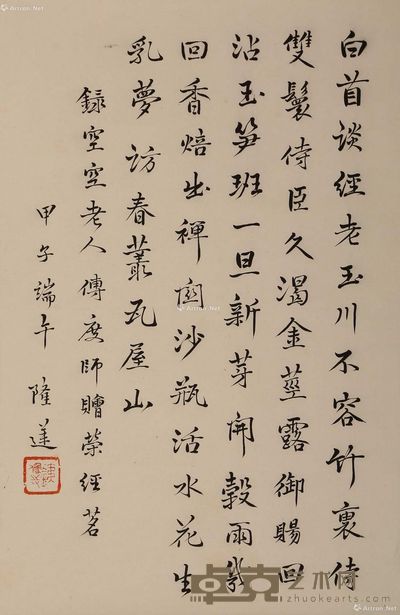 白首談經老玉川不容竹裏侍
雙鬟侍臣久渴金莖露御賜回
沾玉笋班一旦新芽開穀雨幾
回香焙出禪關沙瓶活水花生
乳夢訪春叢瓦屋山
錄空空老人傳度師贈榮經茗
甲子端午 隆蓮
Artron.Net
Artron.Net
卓克艺术网
zhuokearts.com